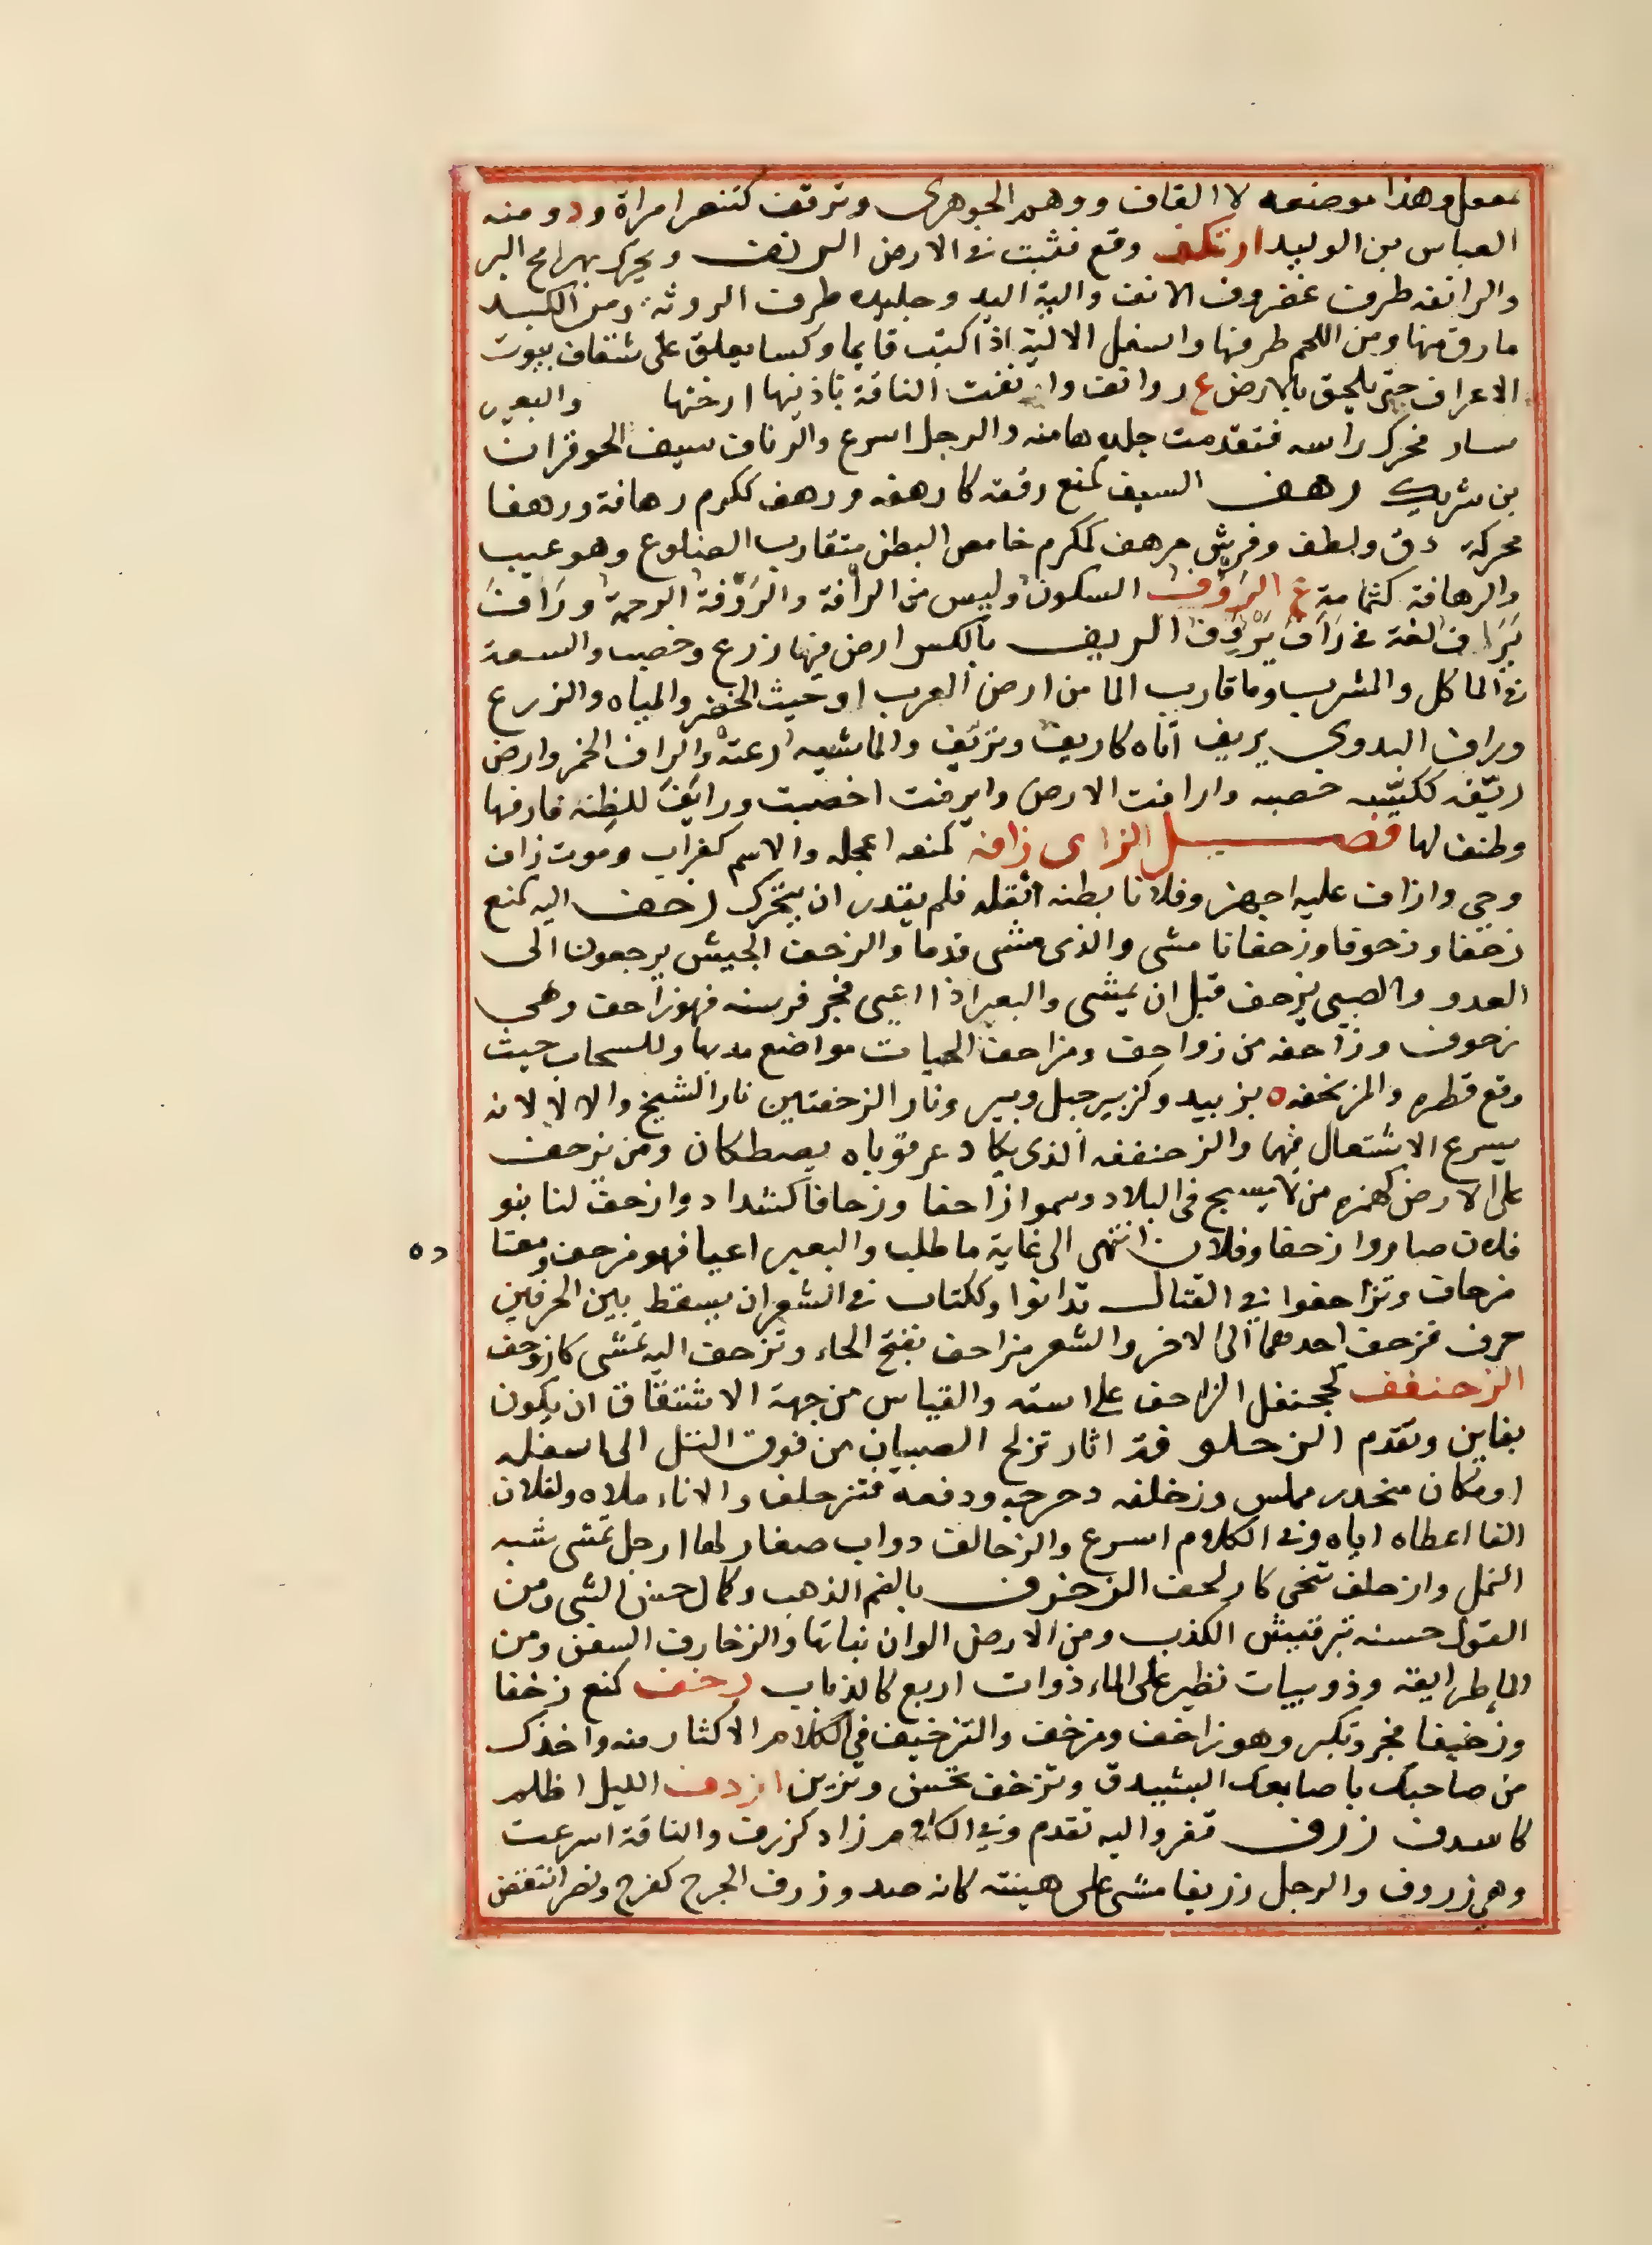 معل وهذا موضعه لا القاف ووهم الجوهرى وترقف كتنصر امراة ودو منه
العباس بن الوليد ارتكف وقع فثبت فى الارض الرنف ويحرك بهرامج البر
والرانفه طرف غضروف الانف والية اليد وجليده طرف الروثة ومن الكبد
مارق منها ومن اللحم طرفها واسفل الالية اذا كنت قايما وكسا يعلق على شقاق بيوت
الاعراب حتى يلحق بالارض ع روانف وارنفت الناقة باذنيها ارختها والبعير
سار فحرك راسه فتقدمت جلدة هامته والرجل اسرع والرناف سيف الحوفزان
بن شريك رهف السيف كمنع رققه كارهفه ورهف ككرم رهافة ورهفا
محركة دق ولطف وفرس مرهف كمكرم خامص البطن متقارب الضلوع وهو عيب
والرهافة كثمامة ع الرَوْف السكون وليس من الرأفة والرَوْفة الرحمة ورَافَ
يَرَاف لغة فى رَأَف يَرْؤُف الريف بالكسر ارض فيها زرع وخصب والسعة
فى الماكل والمشرب وما قارب الما من ارض العرب او حيث الخضر والمياه والزرع
وراف البدوى يريف اتاه كاريف وتريّف والماشيه رعته والراف الخمر وارض
ريّفه ككيّسه خصبه وارافت الارض واريفت اخصبت ورايَفَ للظنه قارفها
وطنف لها فصل الزاى زافه كمنعه اعجله والاسم كغراب وموت زاف
وحى وازاف عليه اجهز وفلانا بطنه اثقله فلم يقدر ان يتحرك زحف اليه كمنع
زحفا وزحوفا وزحفانا مشى والذى مشى قدما والزحف الجيش يرجعون الى
العدو والصبى يزحف قبل ان يمشى والبعير اذا اعيى فجر فرسنه فهو زاحف وهى
زحوف وزاحفه من زواحف ومزاحف الحيات مواضع مدبها وللسحاب حيث
وقع قطره والمزيحفه ه بزبيد وكزبير جبل وبير ونار الزحفتين نار الشيخ والالا لانه
يسرع الاشتعال فيها والزحنففه الذى يكاد عرقوباه يصطكان ومن يزحف
على الارض كهمزه من لا يسيح فى البلاد وسموا زاحفا وزحافا كشداد وازحف لنا بنو
فلان صاروا زحفا وفلان انتهى الى غاية ما طلب والبعير اعيا فهو مزحف ومعتا
ده
مزحاف وتزاحفوا فى القتال تدانوا وككتاب فى الشعر ان يسقط بين الحرفين
حرف فتزحف احدهما الى الاخر والشعر مزاحف بفتح الحاء وتزحف اليه تمشى كازدحف
الزحنفف كجحنفل الزاحف على استه والقياس من جهة الاشتقاق ان يكون
بفاين وتقدم الزحلوفة اثار تزلج الصبيان من فوق التل الى اسفله
او مكان منحدر مملس وزحلفه دحرجه ودفعه فتزحلف والاناء ملاه ولفلان
الفا اعطاه اياه وفى الكلام اسرع والزحالف دواب صغار لها ارجل تمشى شبه
النمل وازحلف تنحى كازلحف الزخرف بالضم الذهب وكمال حسن الشى ومن
القول حسنه بترقيش الكذب ومن الارض الوان نباتها والزخارف السفن ومن
الما طرايقه وذويبات تطير على الماء ذوات اربع كالذباب زخف كمنع زخفا
وزخيفا فخر وتكبر وهو زاخف ومزخف والتزخيف فى الكلام الاكثار منه واخذك
من صاحبك باصابعك البشيدق وتزخف تحسن وتزين ازدف الليل اظلم
كاسدف زرف قفز واليه تقدم وفى الكلام زاد كزرف والناقة اسرعت
وهى زروف والرجل زريفا مشى على هينته كانه ضد وزرف الجرح كفرح ونصر انتقض